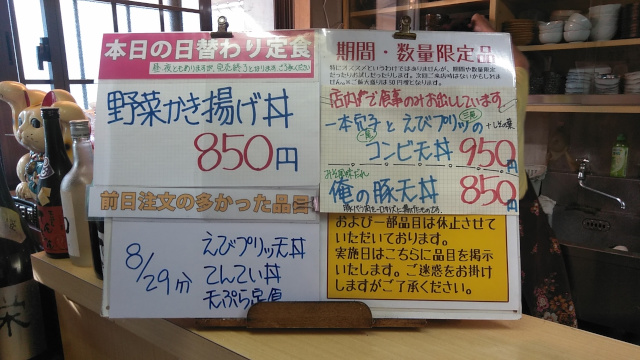 本日の日替わり定食
昼・夜ともありますが、完売終了となります。ご了承ください
野菜かき揚げ丼
850円
前日注文の多かった品目
8/29分
えびプリッ天丼
てんてい丼
天ぷら定食
期間・数量限定品
店内で食事のみお出ししています
一本穴子とえびプリッの
+しその葉
コンビ天丼 950円
俺の豚天丼 850円
および一部品目は休止させて
いただいております。
実施日はこちらに品目を掲示
いたします。ご迷惑をお掛け
しますがご了承ください。